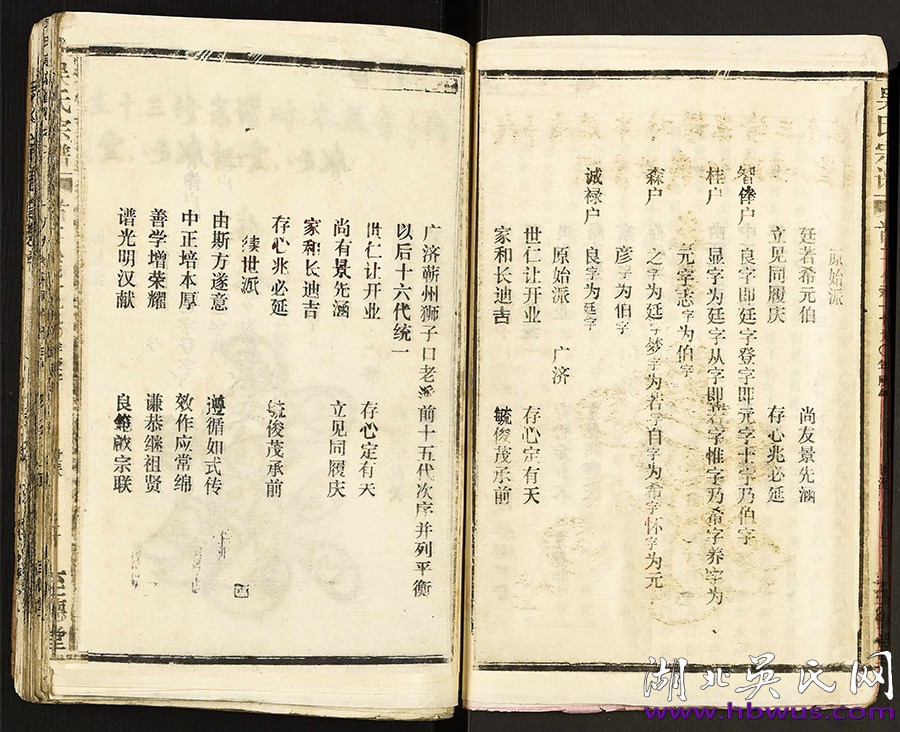 吴氏宗谱
原始派
廷著希元伯 尚友景先涵
立见同履庆 存心兆必延
智俸户 良字即廷字登字即元字士字乃伯字
桂户 显字为廷字从字即著字惟字乃希字养字为
元字志字为伯字
森户 之字为廷字梦字为若字自字为希字怀字为元
彦字为伯字
诚禄户 良字为廷字
原始派 广济
世仁让开业 存心定有天
家和长迪吉 毓俊茂承前
广济蕲州狮子口老派前十五代次序并列平衡
以后十六代统一
世仁让开业 存心定有天
尚有景先涵 立见同履庆
家和长迪吉
存心兆必延 毓俊茂承前
续世派
由斯方遂意 遵循如式传
中正培本厚 效作应常绵
善学增荣耀 谦恭继祖贤
谱光明汉献 良範啟宗联
吴氏宗谱
至德堂
湖北吴氏网
www.hbwus.com